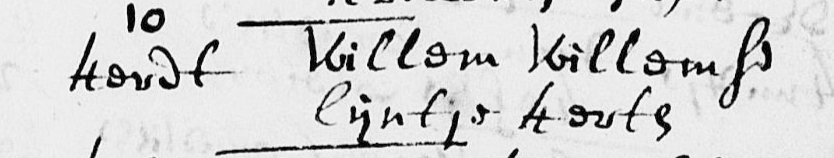 10
Herdt Willem Willemse
Lijntje Herts